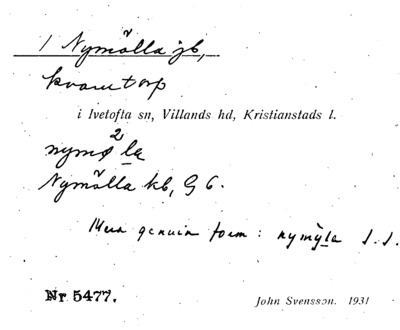 1 Nymölla jb,
kvarntorp
i Ivetofta sn, Villands hd, Kristianstads l.
nymø²la
Nymölla kb, G 6.
Mera genuin form: nymỳla J. S.
Nr 5477.
John Svensson. 1931